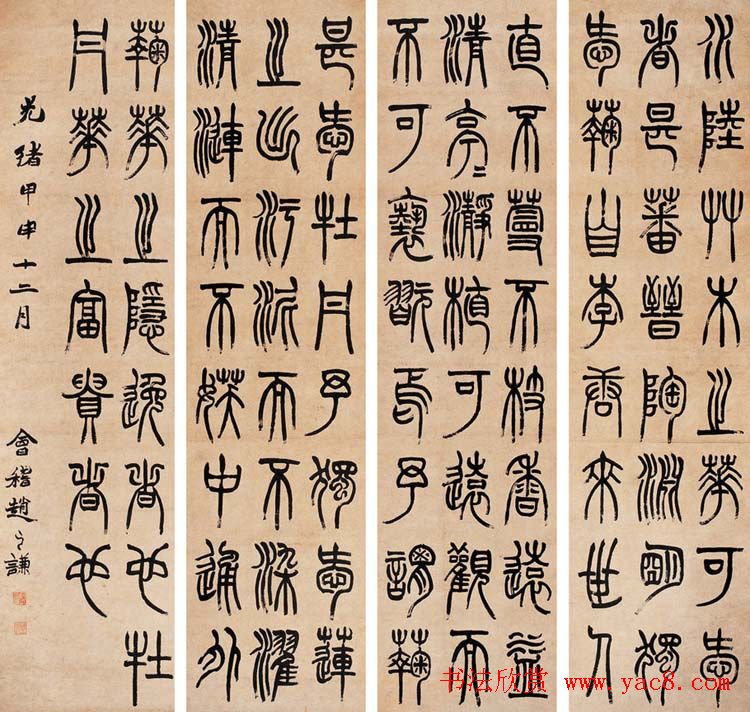 水陸艸木之華可愛
者甚蕃晉陶淵明獨
愛蘜自李唐來世人
直不蔓不枝香遠益
清亭〻瀞植可遠觀而
不可褻翫焉予謂蘜
甚愛牡丹予獨愛蓮
之出污泥而不染濯
清漣而不妖中通外
蘜華之隱逸者也牡
丹華之富貴者也
光緒甲申十二月 會稽趙之謙
书法欣赏 www.yac8.com